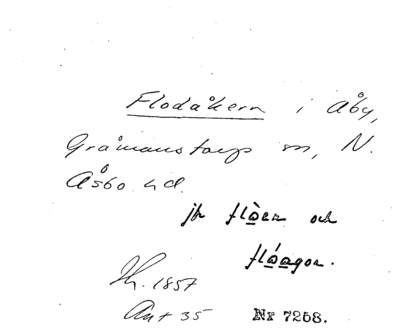 Flodåkern i Åby,
Gråmanstorps sn, N.
Åsbo hd.
jfr flo̲en och
flo̲a̲gor.
Th. 1857
Ant 35 Nr 7258.